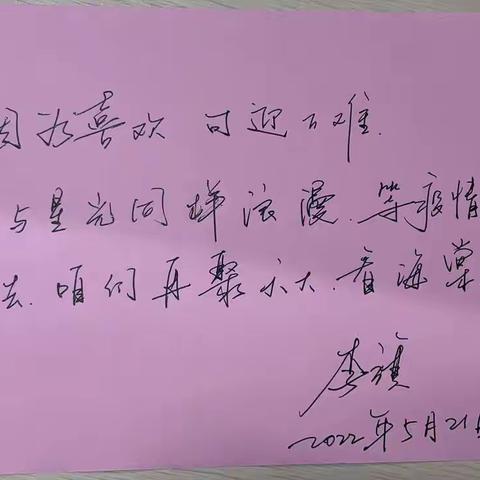 因为喜欢 可迎万难.
与星光同样浪漫.等疫情
去.咱们再聚六大.看海棠
李
2022年5月21日